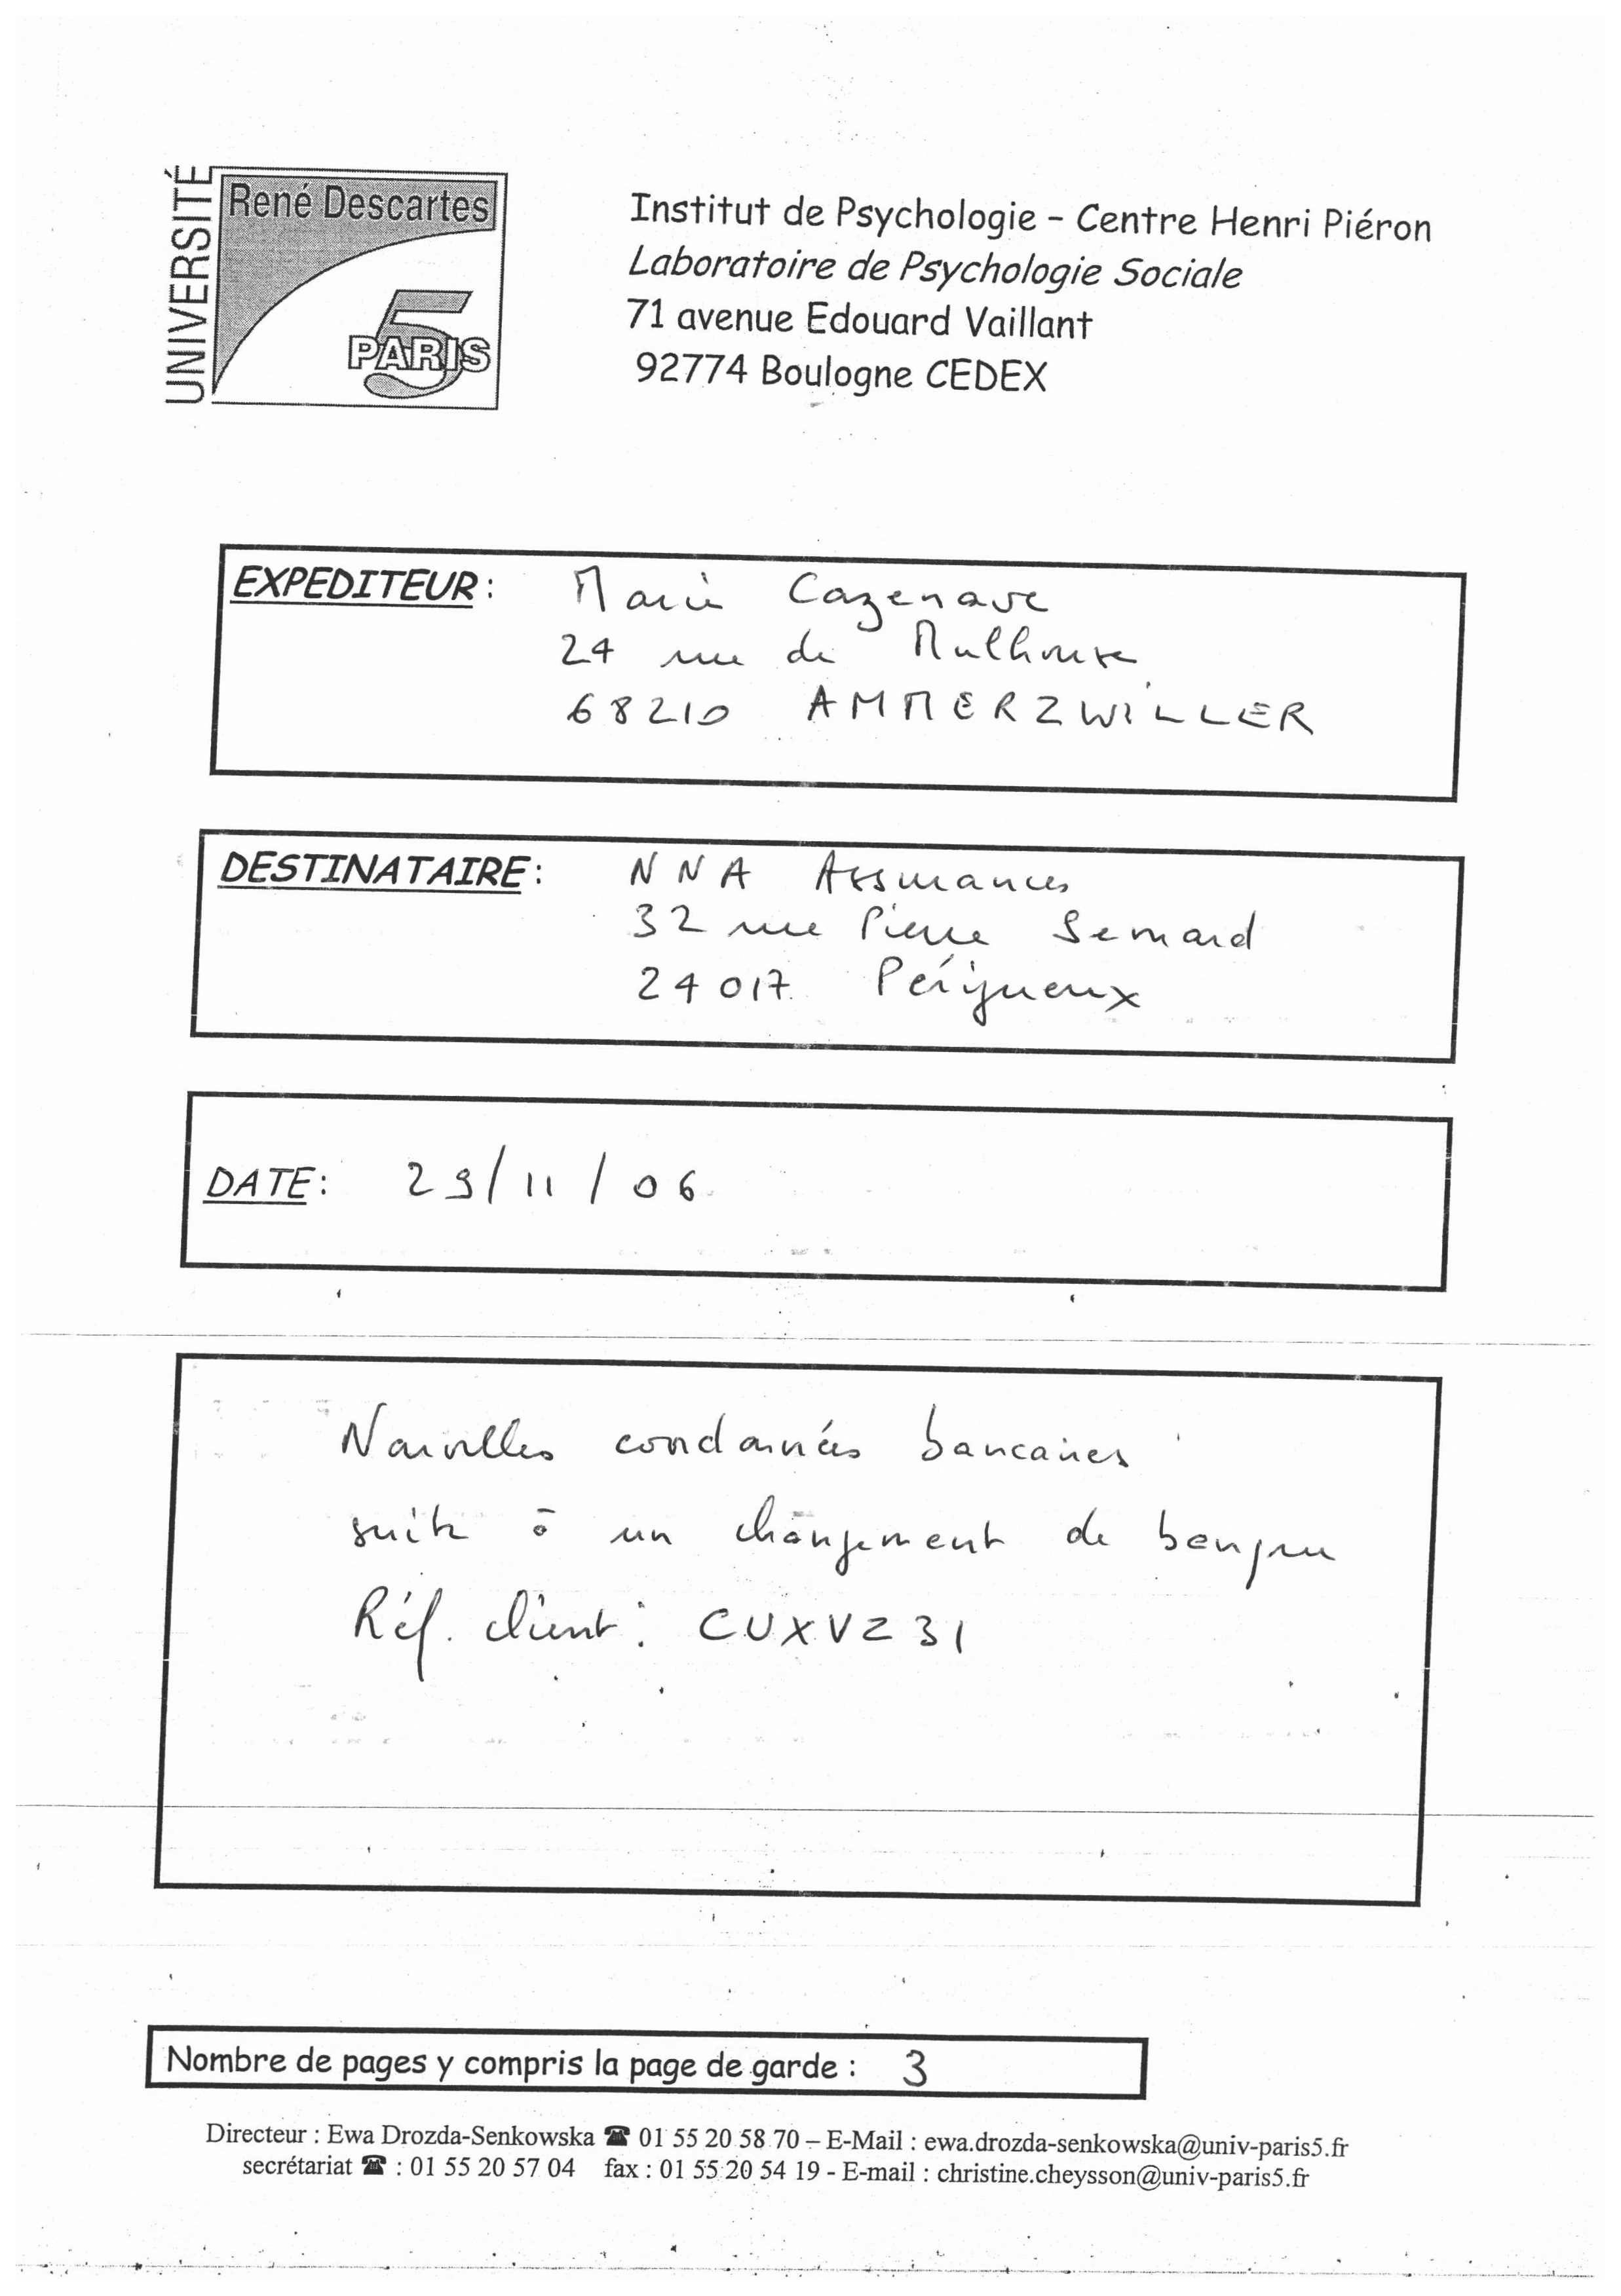 UNIVERSITÉ
René Descartes
PARIS 5
Institut de Psychologie - Centre Henri Piéron
Laboratoire de Psychologie Sociale
71 avenue Edouard Vaillant
92774 Boulogne CEDEX
EXPEDITEUR : Marie Cazenave
24 rue de Mulhouse
68210 AMMERZWILLER
DESTINATAIRE : NNA Assurances
32 rue Pierre Semard
24017 Périgueux
DATE : 29/11/06
Nouvelles coordonnées bancaires
suite à un changement de banque
Réf. client : CUXVZ31
Nombre de pages y compris la page de garde : 3
Directeur : Ewa Drozda-Senkowska ☎ 01 55 20 58 70 – E-Mail : ewa.drozda-senkowska@univ-paris5.fr
secrétariat ☎ : 01 55 20 57 04 fax : 01 55 20 54 19 - E-mail : christine.cheysson@univ-paris5.fr